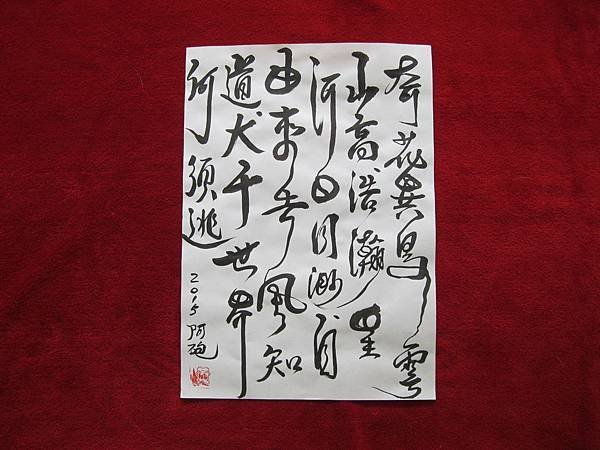 奇花異鳥雲
山高浩瀚星
河日月渺自
由來去風知
道大千世界
何須逃
2015 阿